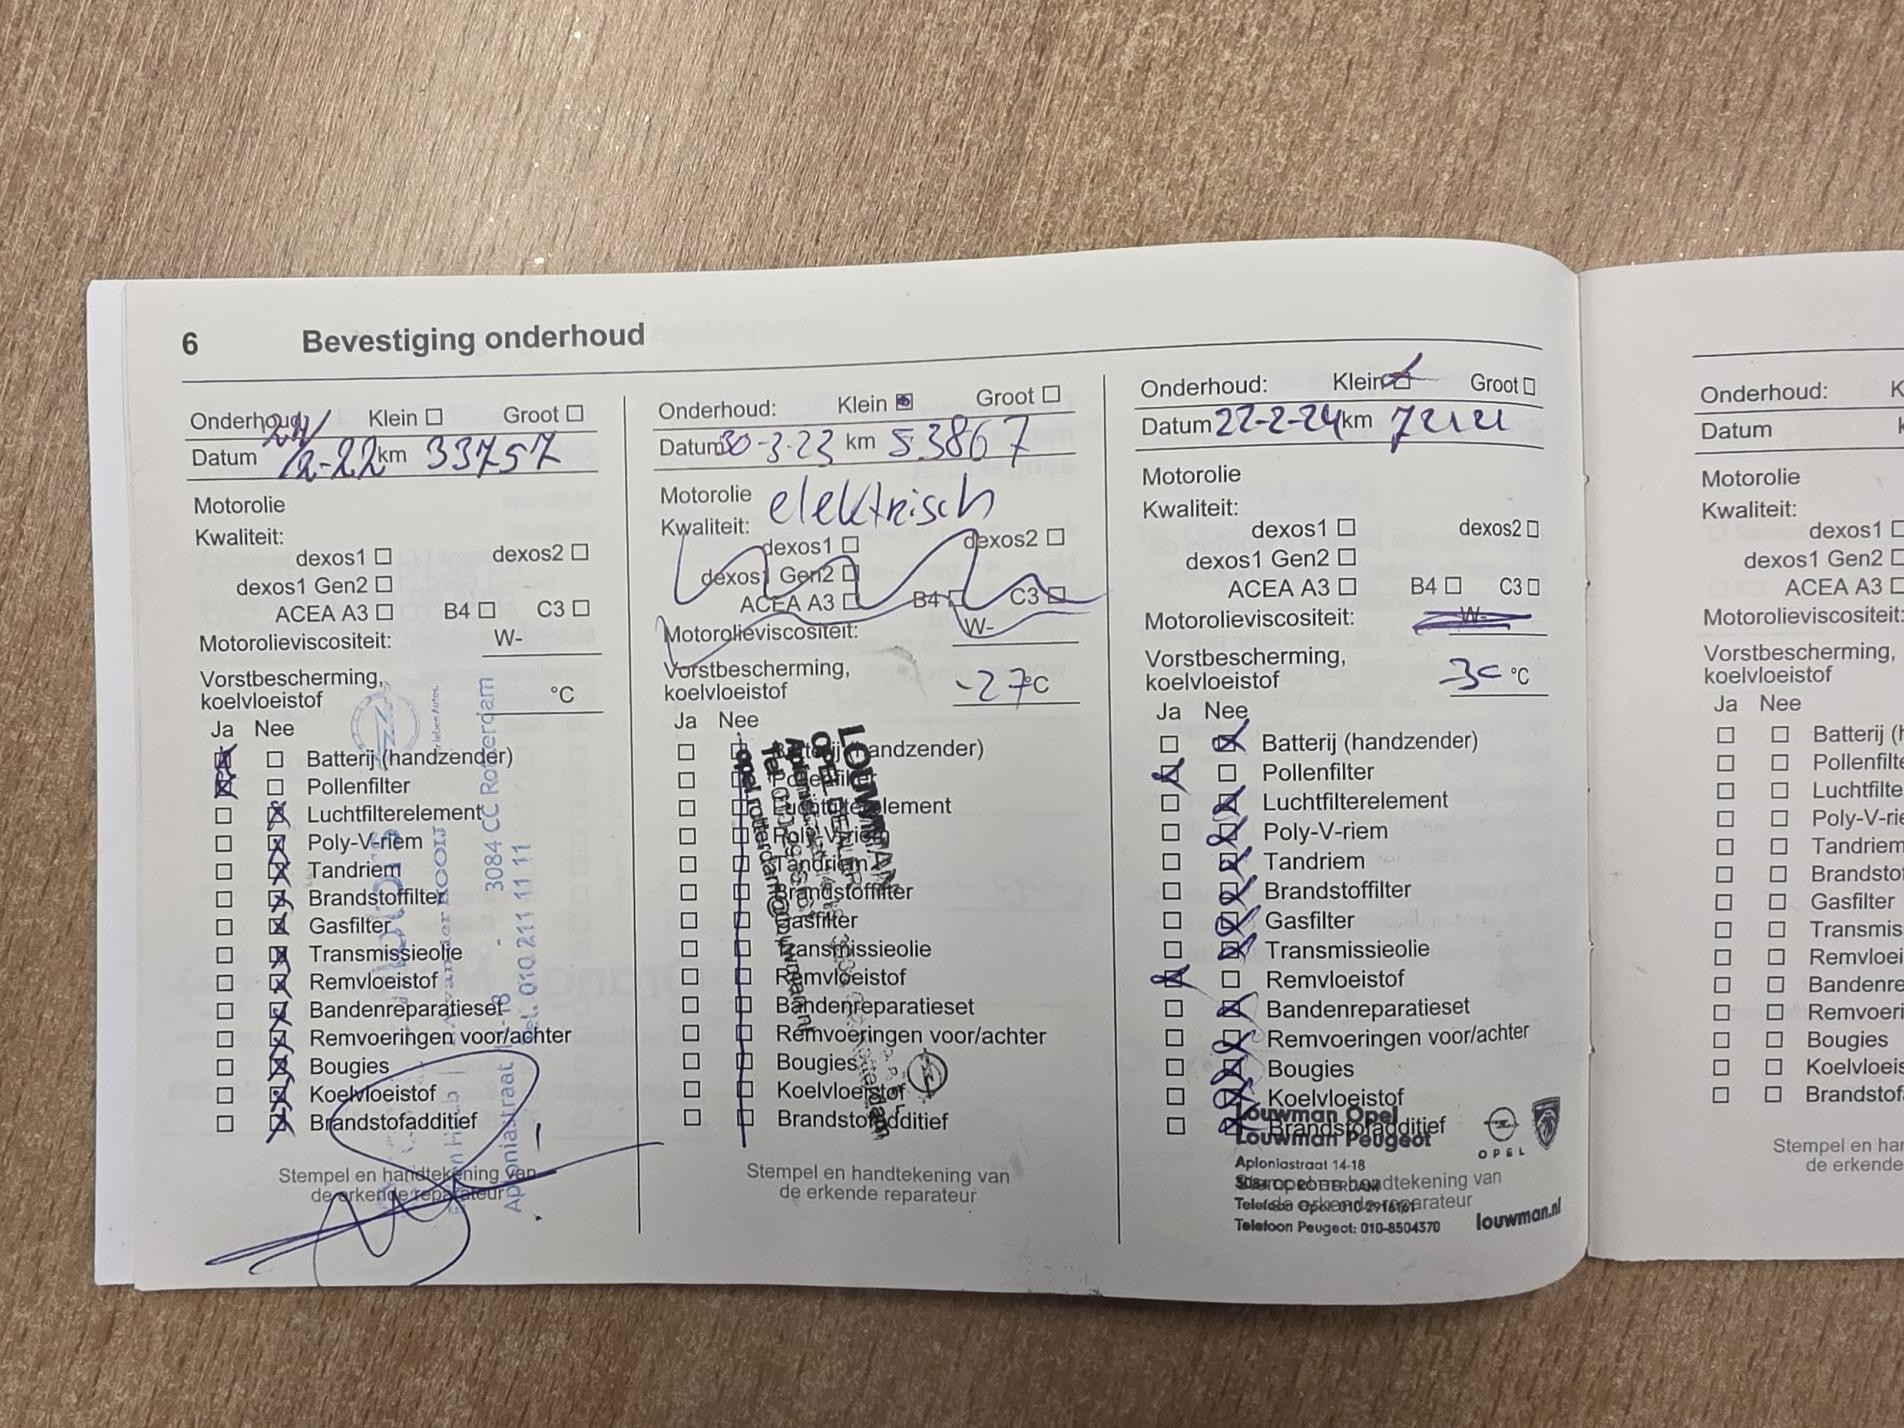 6 Bevestiging onderhoud
Onderhoud: Klein Groot
Datum 24/2-22 km 33757
Motorolie
Kwaliteit:
dexos1 dexos2
dexos1 Gen2
ACEA A3 B4 C3
Motorolieviscositeit: W-
Vorstbescherming,
koelvloeistof °C
Ja Nee
Batterij (handzender)
Pollenfilter
Luchtfilterelement
Poly-V-riem
Tandriem
Brandstoffilter
Gasfilter
Transmissieolie
Remvloeistof
Bandenreparatieset
Remvoeringen voor/achter
Bougies
Koelvloeistof
Brandstofadditief
Stempel en handtekening van
de erkende reparateur
3084 CC Rotterdam
Tel. 010 211 11 11
Aploniastraat
Onderhoud: Klein Groot
Datum 30-3-23 km 53867
Motorolie elektrisch
Kwaliteit:
dexos1 dexos2
dexos1 Gen2
ACEA A3 B4 C3
Motorolieviscositeit: W-
Vorstbescherming,
koelvloeistof -27 °C
Ja Nee
Batterij (handzender)
Pollenfilter
Luchtfilterelement
Poly-V-riem
Tandriem
Brandstoffilter
Gasfilter
Transmissieolie
Remvloeistof
Bandenreparatieset
Remvoeringen voor/achter
Bougies
Koelvloeistof
Brandstofadditief
LOUWMAN
OPEL DEALER
opel.rotterdam@louwman.nl
Stempel en handtekening van
de erkende reparateur
Onderhoud: Klein Groot
Datum 22-2-24 km
Motorolie
Kwaliteit:
dexos1 dexos2
dexos1 Gen2
ACEA A3 B4 C3
Motorolieviscositeit: W-
Vorstbescherming,
koelvloeistof °C
Ja Nee
Batterij (handzender)
Pollenfilter
Luchtfilterelement
Poly-V-riem
Tandriem
Brandstoffilter
Gasfilter
Transmissieolie
Remvloeistof
Bandenreparatieset
Remvoeringen voor/achter
Bougies
Koelvloeistof
Brandstofadditief
Louwman Opel
Louwman Peugeot
OPEL
Aploniastraat 14-18
3084 CC ROTTERDAM
Stempel en handtekening van
de erkende reparateur
Telefoon Opel: 010-2916161
Telefoon Peugeot: 010-8504370
louwman.nl
Onderhoud: K
Datum
Motorolie
Kwaliteit:
dexos1
dexos1 Gen2
ACEA A3
Motorolieviscositeit:
Vorstbescherming,
koelvloeistof
Ja Nee
Batterij (h
Pollenfilte
Luchtfilte
Poly-V-rie
Tandriem
Brandsto
Gasfilter
Transmis
Remvloei
Bandenre
Remvoeri
Bougies
Koelvloeis
Brandstof
Stempel en han
de erkende